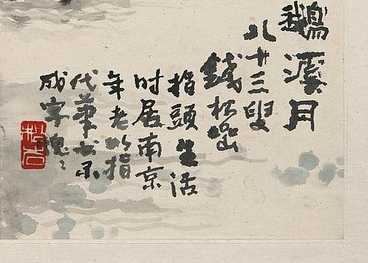 鵝溪月
八十三叟
錢松嵒
指頭生活
时居南京
年老以指
代筆書不
成字愧々